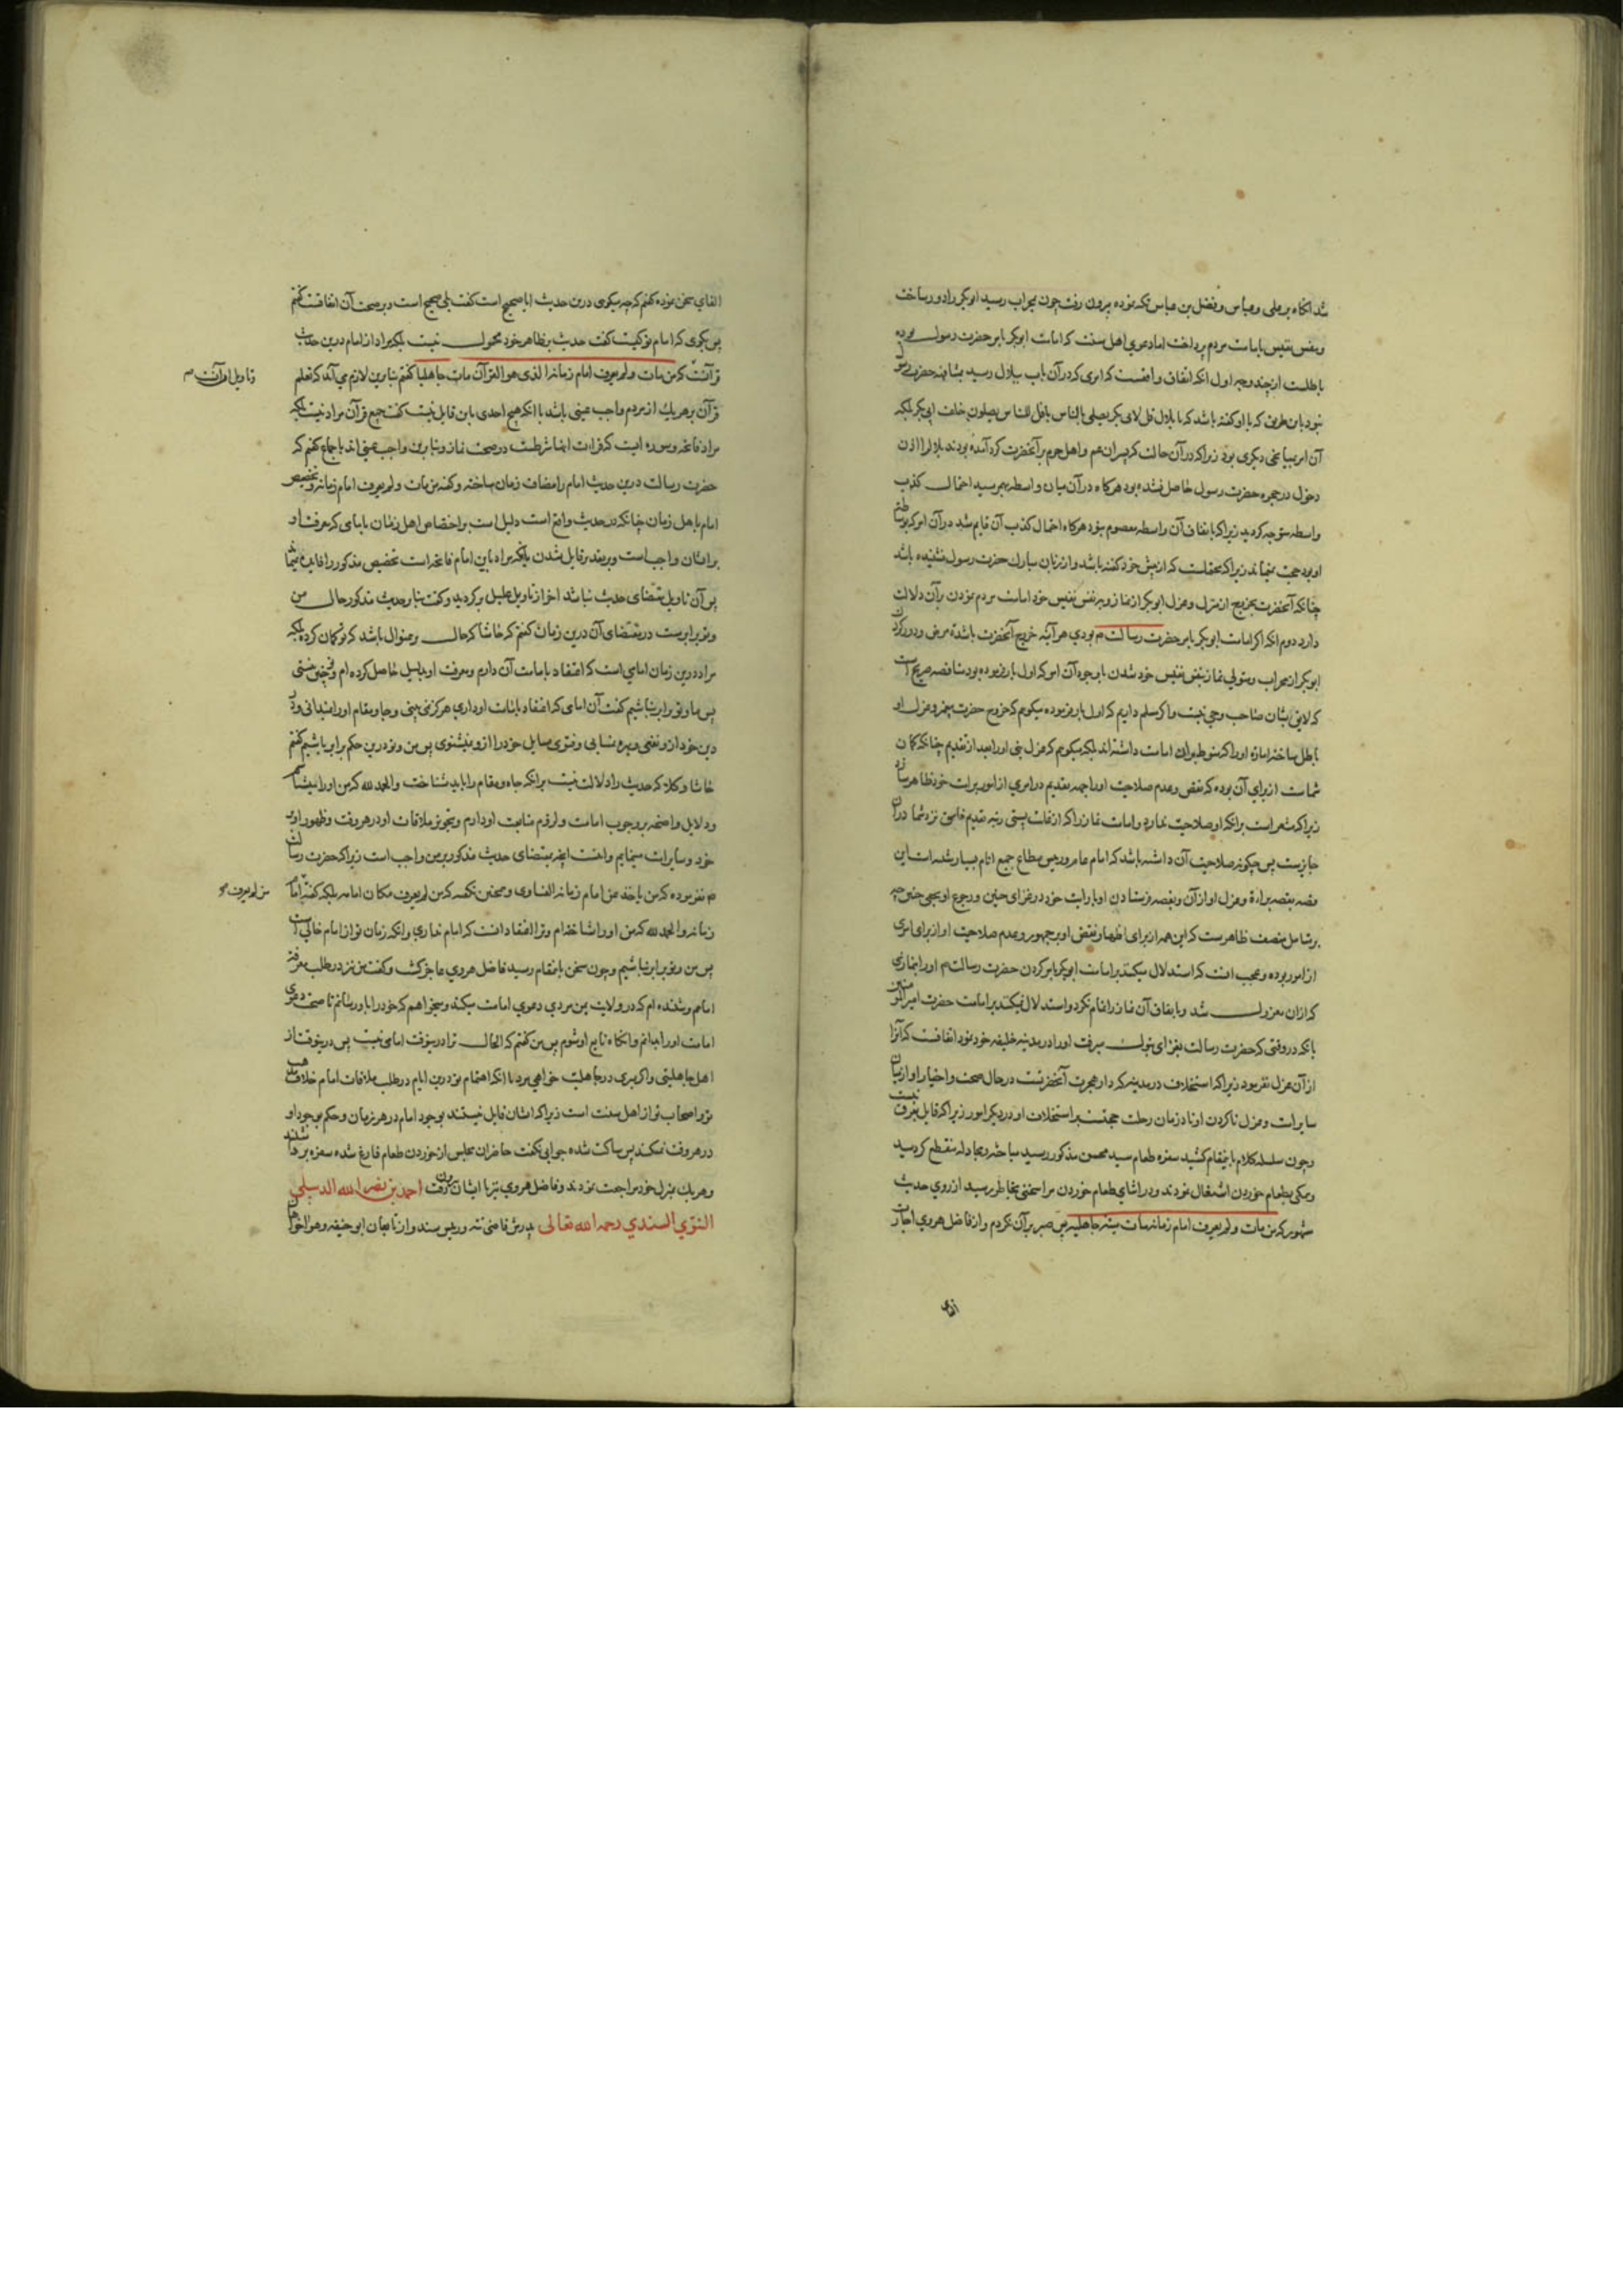 شد انکاه بر علی و عباس و فضل بن عباس تکیه نموده بیرون رفت چون بمحراب رسید ابوبکر را دور ساخت
و بنفس نفیس بامامت مردم پرداخت اما دعوی اهل سنت که امامت ابوبکر بامر حضرت رسول بوده
باطلست از چند وجه اول انکه اتفاق واقعست که امری که در آن باب ببلال رسید بمشافهه حضرت رسول
نبود باین طریق که با او کفته باشد که یا بلال قل لابی بکر یصلی بالناس یا قل للناس یصلون خلف ابی بکر بلکه
آن امر بمیانجی دیکری بود زیرا که در آن حالت که پسران عم و اهل حرم بر آنحضرت کرد آمده بودند بلال را اذن
دخول در حجره حضرت رسول حاصل نشده بود هرکاه در آن میان واسطه بهم رسید احتمال کذب
واسطه متوجه کردید زیرا که باتفاق آن واسطه معصوم نبود هرکاه احتمال کذب آن قایم شد در آن امر که بواسطه
او بود حجت نمیماند زیرا که محتملست که از پیش خود کفته باشد و از زبان مبارک حضرت رسول نشنیده باشد
چنانکه آنحضرت بخروج از منزل و عزل ابوبکر از نماز و بنفس نفیس خود امامت مردم نمودن بر آن دلالت
دارد دوم انکه اکر امامت ابوبکر بامر حضرت رسالت م بودی هر آینه خروج آنحضرت باشدة مرض و دور کردن
ابوبکر از محراب و متولی نماز بنفس نفیس خود شدن با وجود آن امر که اول بار فرموده بود مناقضه صریح است
که لایق بشان صاحب وحی نیست و اکر مسلم داریم که اول بار فرموده میکویم که خروج حضرت پیغمبر و عزل او
باطل ساخته امارة او را
شماست از برای آن بوده که نقص و عدم صلاحیت او را جهة تقدیم در امری از امور برامت خود ظاهر سازد
زیرا که مشعر است برانکه او صلاحیت ندارد و امامت نماز را که از غایت پستی رتبه تقدیم فاسق نزد شما در آن
جایزست پس چکونه صلاحیت آن داشته باشد که امام عام و رئیس مطاع جمیع انام
قصه بقصه براءة و عزل او از آن و بقصه فرستادن او با رایت خود در غزای حنین و رجوع او
بر متامل منصف ظاهرست که این همه از برای اظهار نقص او بر جمهور و عدم صلاحیت او از برای امری
از امور بوده و عجب انست که استدلال میکنند بر امامت ابوبکر بامر کردن حضرت رسالت م او را بنمازی
که از ان معزول شد و باتفاق آن نماز را تمام نکرد و استدلال نمیکنند بر امامت حضرت امیر المومنین
بانکه در وقتی که حضرت رسالت بغزای تبوک میرفت او را در مدینه خلیفه خود نمود اتفاقست که او را
از آن عزل نفرمود زیرا که استخلاف در مدینه که دار هجرت آنحضرتست در حال صحت و اختیار او از میان
سایر امت و عزل ناکردن او تا در زمان رحلت حجتست بر استخلاف او در دیکر امور زیرا که قایل بفرق نیست
و چون سلسله کلام باینمقام کشید سفره طعام سید محسن مذکور رسید مباحثه و مجادله منقطع کردید
و همکی بطعام خوردن اشتغال نمودند و در اثنای طعام خوردن مرا سخنی بخاطر رسید از روی حدیث
مشهور که من مات و لم یعرف امام زمانه مات میتة جاهلیة پس صبر بر آن نکردم و از فاضل هروی اجازت
القای
القای سخن نموده کفتم که چه میکوی درین حدیث ایا صحیح است کفت بلی صحیح است و بر صحت آن اتفاقست کفتم
پس بکوی که امام تو کیست کفت حدیث بظاهر خود محمول نیست بلکه مراد از امام درین حدیث
قرآنست که من مات و لم یعرف امام زمانه الذی هو القرآن مات جاهلیا کفتم بنابرین لازم می آید که تعلم
قرآن بر هریک از مردم واجب عینی باشد با انکه هیچ احدی باین قایل نیست کفت جمیع قرآن مراد نیست بلکه
مراد فاتحه و سوره ایست که قراءت اینها شرطست در صحت نماز و بنابرین واجب عینی اند باجماع کفتم که
حضرت رسالت درین حدیث امام را مضاف زمان ساخته و کفته من مات و لم یعرف امام زمانه و تخصیص
امام باهل زمان چنانکه در حدیث واقع است دلیل است بر اختصاص اهل زمان بامامی که معرفت او
بر ایشان واجب است و بر تقدیر قایل شدن بانکه مراد باین امام فاتحه است تخصیص مذکور را فایده نمیماند
پس آن تاویل مقتضای حدیث نباشد اخر از تاویل علیل برکردید و کفت بنابر حدیث مذکور حال من
و تو برابرست در مقتضای آن درین زمان کفتم که حاشا که حال برینمنوال باشد که تو کمان کرده بلکه
مرا درین زمان امامی است که اعتقاد بامامت آن دارم و معرفت او بدلیل حاصل کرده ام و تو چنین نیستی
پس ما و تو برابر نباشیم کفت آن امامی که اعتقاد بامامت او داری هرکز نمی بینی و جا و مقام او را نمیدانی و در
دین خود از و نفعی و بهره نمییابی و فتوی مسایل خود را از و نمیشنوی پس من و تو درین حکم برابر باشیم کفتم
حاشا و کلا که حدیث را دلالت نیست برانکه جا و مقام را باید شناخت و الحمد لله که من او را میشناسم
و دلایل واضحه بر وجوب امامت و لزوم متابعت او دارم و تجویز ملاقات او در هر وقت و ظهور او بر
خود و سایر امت مینمایم و انست انچه بمقتضای حدیث مذکور بر من واجب است زیرا که حضرت رسالت
م نفرموده که من یاخذ عن امام زمانه الفتاوی و همچنین نکفته که من لم یعرف مکان امامه بلکه کفته امام
زمانه و الحمد لله که من او را شناخته ام و ترا اعتقاد انست که امام نداری و انکه زمان تو از امام خالی است
پس من و تو برابر نباشیم و چون سخن باینمقام رسید فاضل هروی عاجز کشت و کفت من نیز در طلب معرفت
امامم و شنیده ام که در ولایت یمن مردی دعوی امامت میکند و میخواهم که خود را باو رسانم تا صحت دعوی
امامت او را بدانم و انکاه تابع او شوم پس من کفتم که الحال ترا درینوقت امامی نیست پس درینوقت از
اهل جاهلیتی و اکر بمیری در جاهلیت خواهی مرد با انکه اهتمام تو درین ایام در طلب ملاقات امام خلاف مذهب
تو و اصحاب تو از اهل سنت است زیرا که ایشان قایل نیستند بوجود امام در هر زمان و حکم بوجود او
در هر وقت نمیکنند پس ساکت شده جوابی نکفت حاضران مجلس از خوردن طعام فارغ شده سفره برداشتند
و هریک بمنزل خود مراجعت نمودند و فاضل هروی نیز با ایشان بیرون رفت احمد بن نصر الله الدبیلی
التتوی السندی رحمه الله تعالی پدرش قاضی تته و رئیس سند و از تابعان ابو حنیفه
و تاویل او آنست م
من لم یعرف